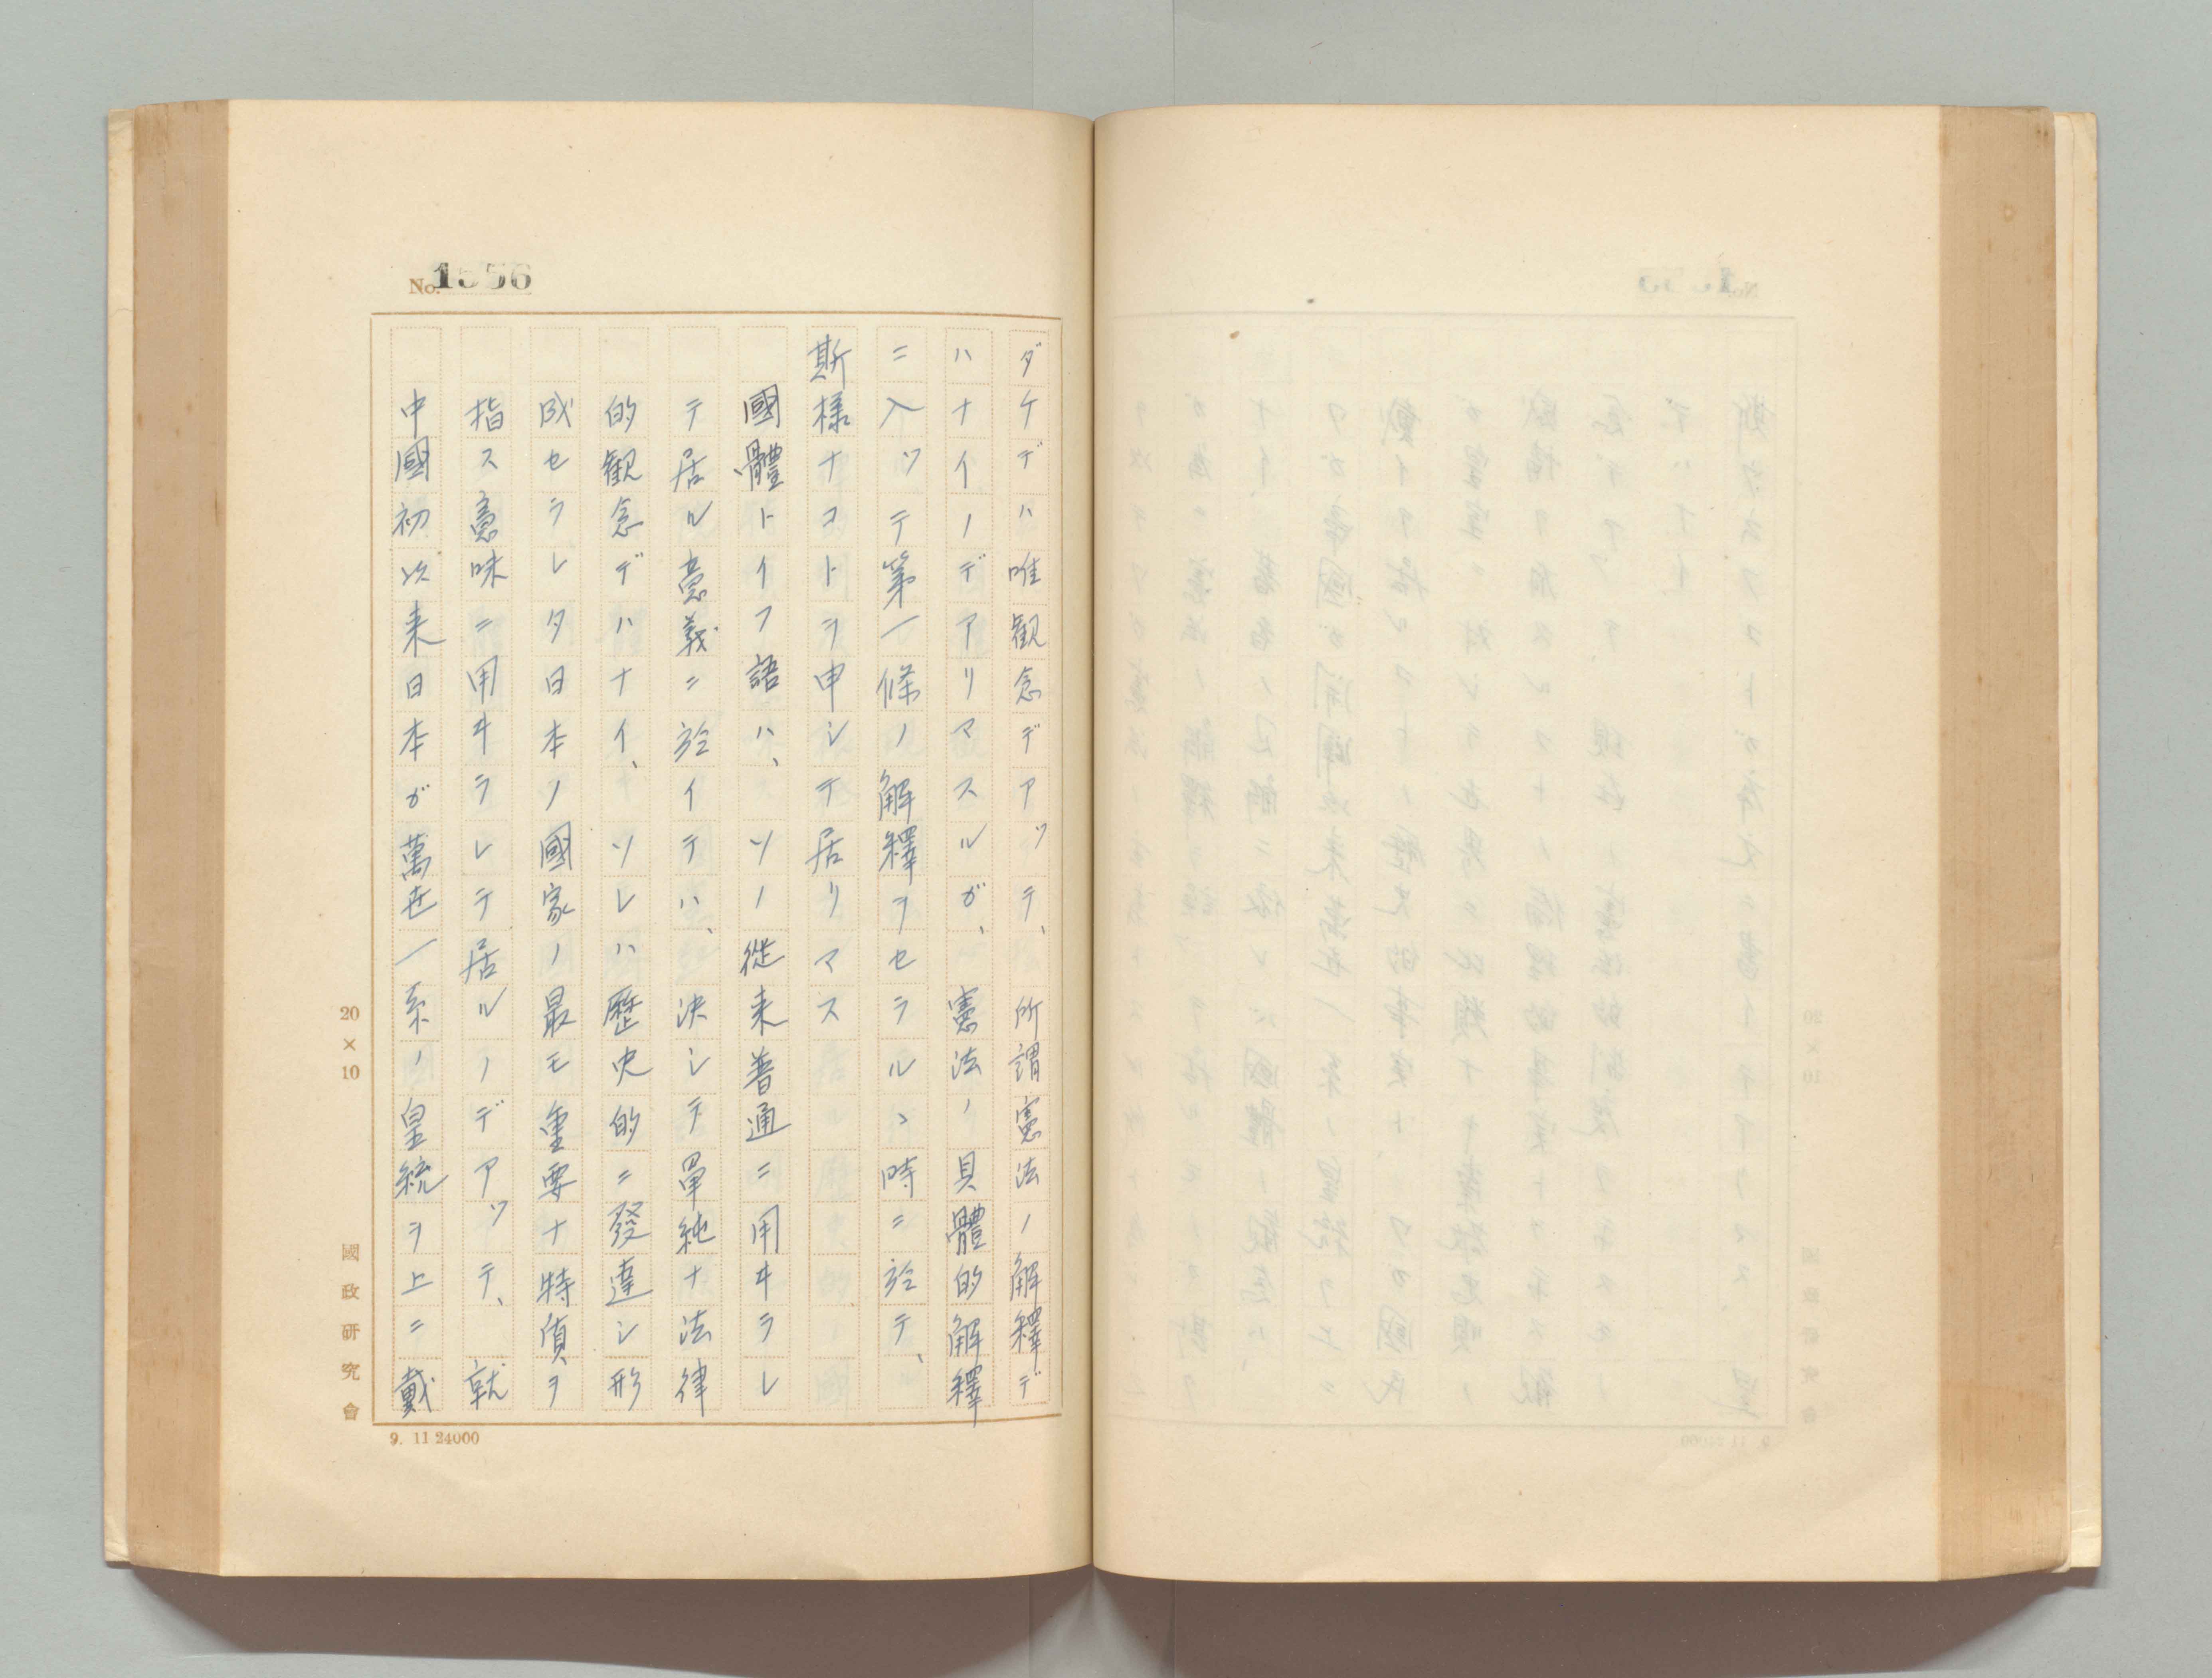 No. 1556
ダケデハ唯観念デアツテ、所謂憲法ノ解釋デ
ハナイノデアリマスルガ、憲法ノ具體的解釋
ニ入ツテ第一條ノ解釋ヲセラルヽ時ニ於テ、
斯様ナコトヲ申シテ居リマス
國體トイフ語ハ、ソノ從来普通ニ用ヰラレ
テ居ル意義ニ於イテハ、決シテ單純ナ法律
的観念デハナイ、ソレハ歴史的ニ發達シ形
成セラレタ日本ノ國家ノ最モ重要ナ特質ヲ
指ス意味ニ用ヰラレテ居ルノデアツテ、就
中國初以来日本ガ萬世一系ノ皇統ヲ上ニ戴
20×10
國政研究會
9. 11 24000